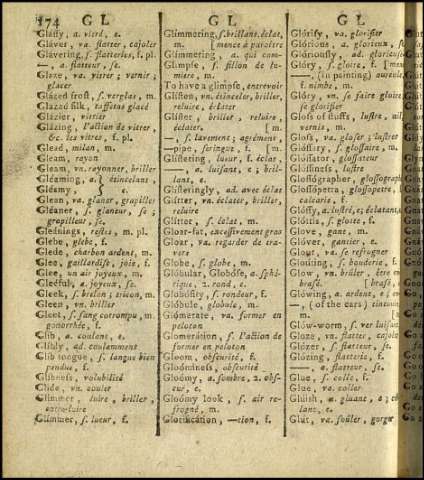 174 G L G L G L
Glassy, a. vitré, e.
Gláver, va. flatter, cajoler
Glávering, s. flatteries, f. pl.
—, a. flatteur, se.
Glaze, va. vitrer; vernir;
glacer
Glázed frost, s. verglas, m.
Glazed silk, taffetas glacé
Glázier, vitrier
Glázing, l'action de vitrer,
&c. les vitres, f. pl.
Glead, milan, m.
Gleam, rayon
Gleam, vn. rayonner, briller
Gléaming, a. étincelant,
Gléamy, e.
Glean, va. glaner, grapiller
Gléaner, s. glaneur, se;
grapilleur, se.
Gleánings, restes, m. pl.
Glebe, glebe, f.
Glede, charbon ardent, m.
Glee, gaillardise, joie, f.
Glee, un air joyeux, m.
Gleéful, a. joyeux, se.
Gleek, s. brelan; tricon, m.
Gleen, vn. briller
Gleet, s. sang corrompu, m.
gonorrhée, f.
Glib, a. coulant, e.
Glibly, ad. coulamment
Glib tongue, s. langue bien
pendue, f.
Glíbness, volubilité
Glide, vn. couler
Glimmer, luire, briller,
Glimmer, s. lueur, f.
Glimmering, s. brillans, éclat,
m. [mence à paraître
Glimmering, a. qui com-
Glimpse, s. rillon de lu-
miere, m.
To have a glimpse, entrevoir
Glisten, vn. étinceler, briller,
reluire, éclater
Glister, briller, reluire,
éclater, [m.
—, s. lavement; agrément,
—pipe, seringue, f.
Glístering, lueur, f. éclat, m.
—, a. luisant, e; bril-
lant, e.
Glisteringly, ad. avec éclat
Glitter, va. éclater, briller,
reluire
Glitter, s. éclat, m.
Gloar-fat, excessivement gras
Gloar, va. regarder de tra-
vers
Globe, s. globe, m.
Glóbular, Globóse, a. sphé-
rique, 2. rond, e.
Globósity, s. rondeur, f.
Glóbule, globule, m.
Glómerate, va. former en
peloton
Glomerátion, s. l'action de
former en peloton
Gloom, obscurité, f.
Gloóminess, obscurité
Gloómy, a. sombre, 2. obs-
cur, e.
Gloómy look, s. air re-
frogné, m.
Glorification, —tion, f.
Glórify, va. glorifier
Glórious, a. glorieux, s
Glóriously, ad. glorieuse
Glóry, s. gloire, f. [m
—, (in painting) auréole,
f. nimbe, m.
Glóry, vn. se faire gloire
se glorifier
Gloss of stuffs, lustre, œil
vernis, m.
Gloss, va. gloser; lustrer
Glóssary, s. glossaire, m.
Glossátor, glossateur
Glóssiness, lustre
Glossógrapher, glossograph
Glossópetra, glossopetre,
calcaire, f.
Glóssy, a. lustré, e; éclatant,
Glóttis, s. glotte, f.
Glove, gant, m.
Glóver, gantier, e.
Glout, va. se refrogner
Glóuting, s. bouderie, f.
Glow, vn. brûler, être
brasé. [brasé, e
Glówing, a. ardent, e; em
— (of the ears) tintouin
m.
Glow-worm, s. ver luisant
Gloze, vn. flatter, cajoler
Glózer, flatteur, se.
Glózing, flatterie, f.
—, a. flatteur, se.
Glue, s. colle, f.
Glue, va. coller
Glúish, a. gluant, e; col
lant, e.
Glut, va. soûler, gorger